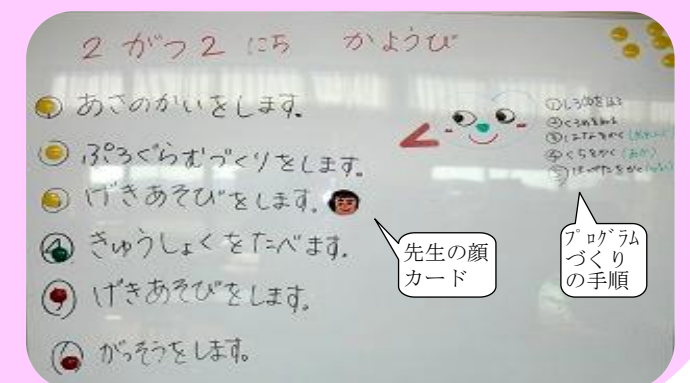 2がつ2にち かようび
あさのかいをします。
ぷろぐらむづくりをします。
げきあそびをします。
きゅうしょくをたべます。
げきあそびをします。
がっそうをします。
①しろめをはる
②くろめをぬる
③はなをかく
④くちをかく(あか)
先生の顔
カード
プログラム
づくり
の手順